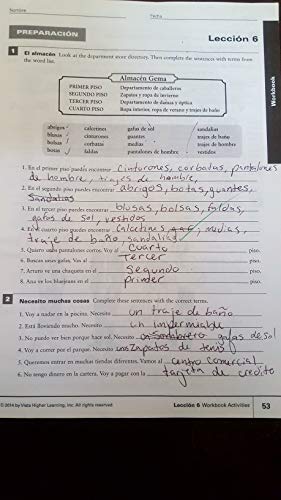 Nombre
Fecha
PREPARACIÓN
Lección 6
Workbook
1 El almacén Look at the department store directory. Then complete the sentences with terms from
the word list.
Almacén Gema
PRIMER PISO Departamento de caballeros
SEGUNDO PISO Zapatos y ropa de invierno
TERCER PISO Departamento de damas y óptica
CUARTO PISO Ropa interior, ropa de verano y trajes de baño
abrigos calcetines gafas de sol sandalias
blusas cinturones guantes trajes de baño
bolsas corbatas medias trajes de hombre
botas faldas pantalones de hombre vestidos
1. En el primer piso puedes encontrar cinturones, corbatas, pantalones
de hombre, trajes de hombre.
2. En el segundo piso puedes encontrar abrigos, botas, guantes,
Sandalias
3. En el tercer piso puedes encontrar blusas, bolsas, faldas,
gafas de sol, vestidos
4. En el cuarto piso puedes encontrar Calcetines, medias,
traje de baño, sandalias
5. Quiero unos pantalones cortos. Voy al Cuarto piso.
6. Buscas unas gafas. Vas al Tercer piso.
7. Arturo ve una chaqueta en el Segundo piso.
8. Ana ve los bluejeans en el primer piso.
2 Necesito muchas cosas Complete these sentences with the correct terms.
1. Voy a nadar en la piscina. Necesito un traje de baño
2. Está lloviendo mucho. Necesito un impermiable
3. No puedo ver bien porque hace sol. Necesito un sombrero gafas de sol
4. Voy a correr por el parque. Necesito unos Zapatos de tenis
5. Queremos entrar en muchas tiendas diferentes. Vamos al centro comercial
6. No tengo dinero en la cartera. Voy a pagar con la tarjeta de credito
© 2014 by Vista Higher Learning, Inc. All rights reserved. Lección 6 Workbook Activities 53